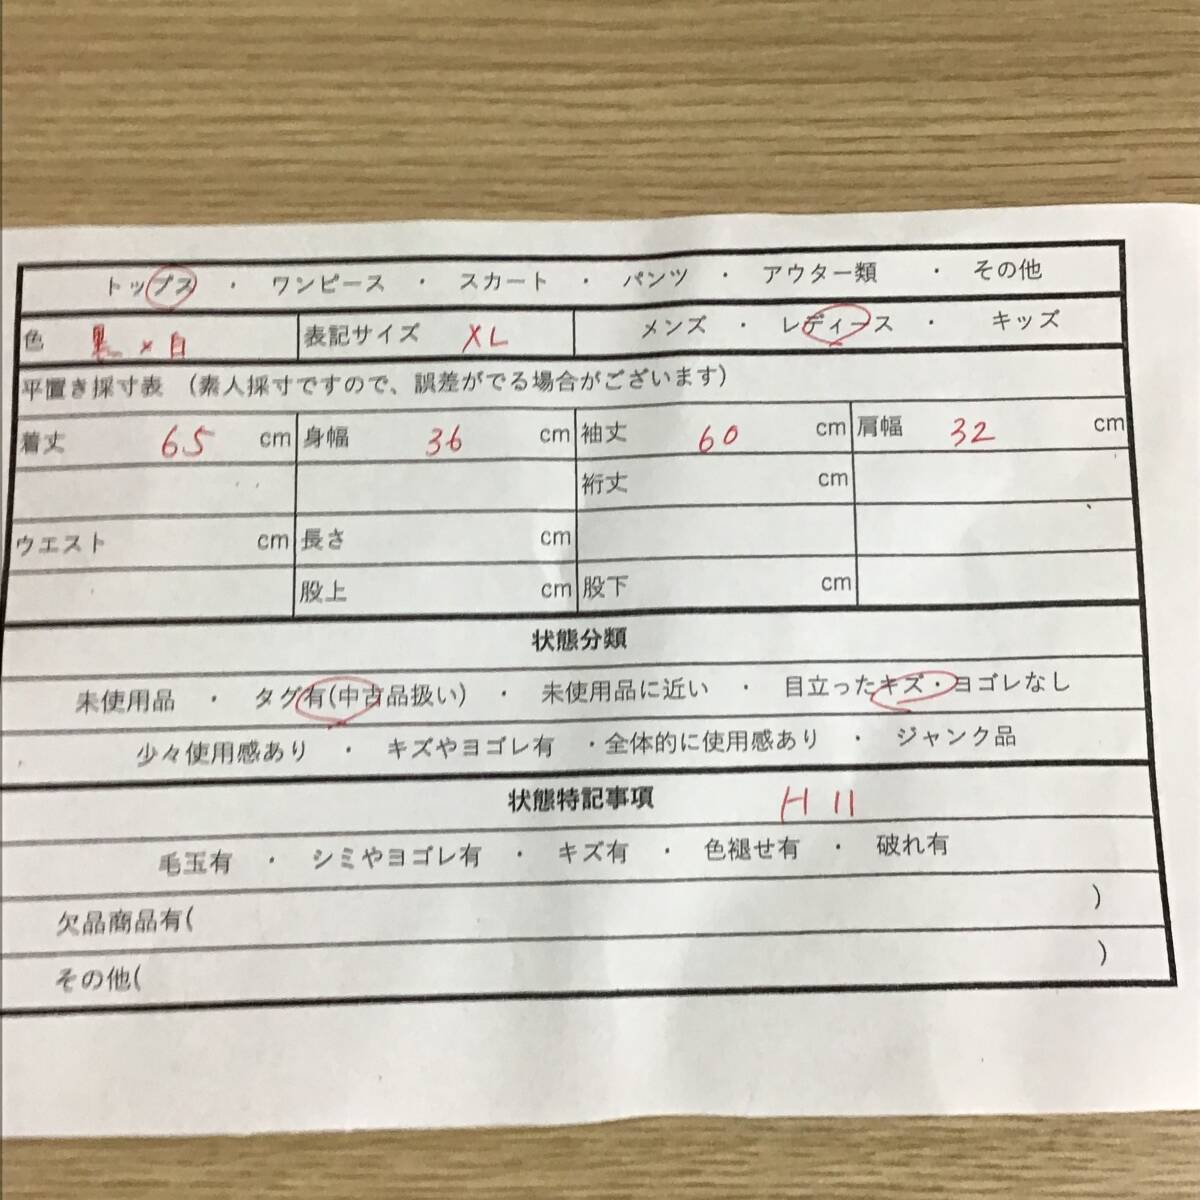 トップス ・ ワンピース ・ スカート ・ パンツ ・ アウター類 ・ その他
色 黒×白 表記サイズ XL メンズ ・ レディース ・ キッズ
平置き採寸表 （素人採寸ですので、誤差がでる場合がございます）
着丈 65 cm 身幅 36 cm 袖丈 60 cm 肩幅 32 cm
裄丈 cm
ウエスト cm 長さ cm
股上 cm 股下 cm
状態分類
未使用品 ・ タグ有(中古品扱い) ・ 未使用品に近い ・ 目立ったキズ・ヨゴレなし
少々使用感あり ・ キズやヨゴレ有 ・全体的に使用感あり ・ ジャンク品
状態特記事項 H11
毛玉有 ・ シミやヨゴレ有 ・ キズ有 ・ 色褪せ有 ・ 破れ有
欠品商品有( )
その他( )